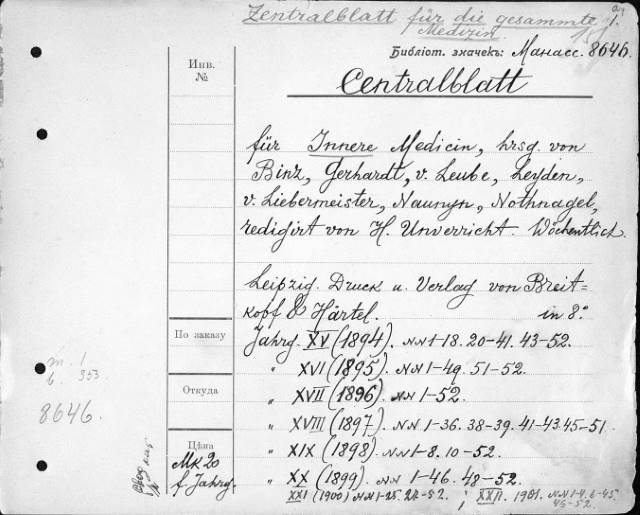 Zentralblatt für die gesammte
Medizin.
Библіот. значекъ: Манасс. 8646.
Centralblatt
Инв.
№
für Innere Medicin, hrsg. von
Binz, Gerhardt, v. Leube, Leyden,
v. Liebermeister, Naunyn, Nothnagel,
redigirt von H. Unverricht. Wöchentlich.
Leipzig. Druck u. Verlag von Breit=
kopf & Härtel. in 8°.
По заказу
Jahrg. XV (1894). NN 1-18. 20-41. 43-52.
" XVI (1895). NN 1-49. 51-52.
Откуда
" XVII (1896). NN 1-52.
" XVIII (1897). NN 1-36. 38-39. 41-43. 45-51.
8646.
Цѣна
Mk 20
f. Jahrg.
" XIX (1898). NN 1-8. 10-52.
" XX (1899). NN 1-46. 48-52.
XXI (1900) NN 1-25. 27-52. ; XXII. 1901. NN 1-4. 6-45.
46-52.